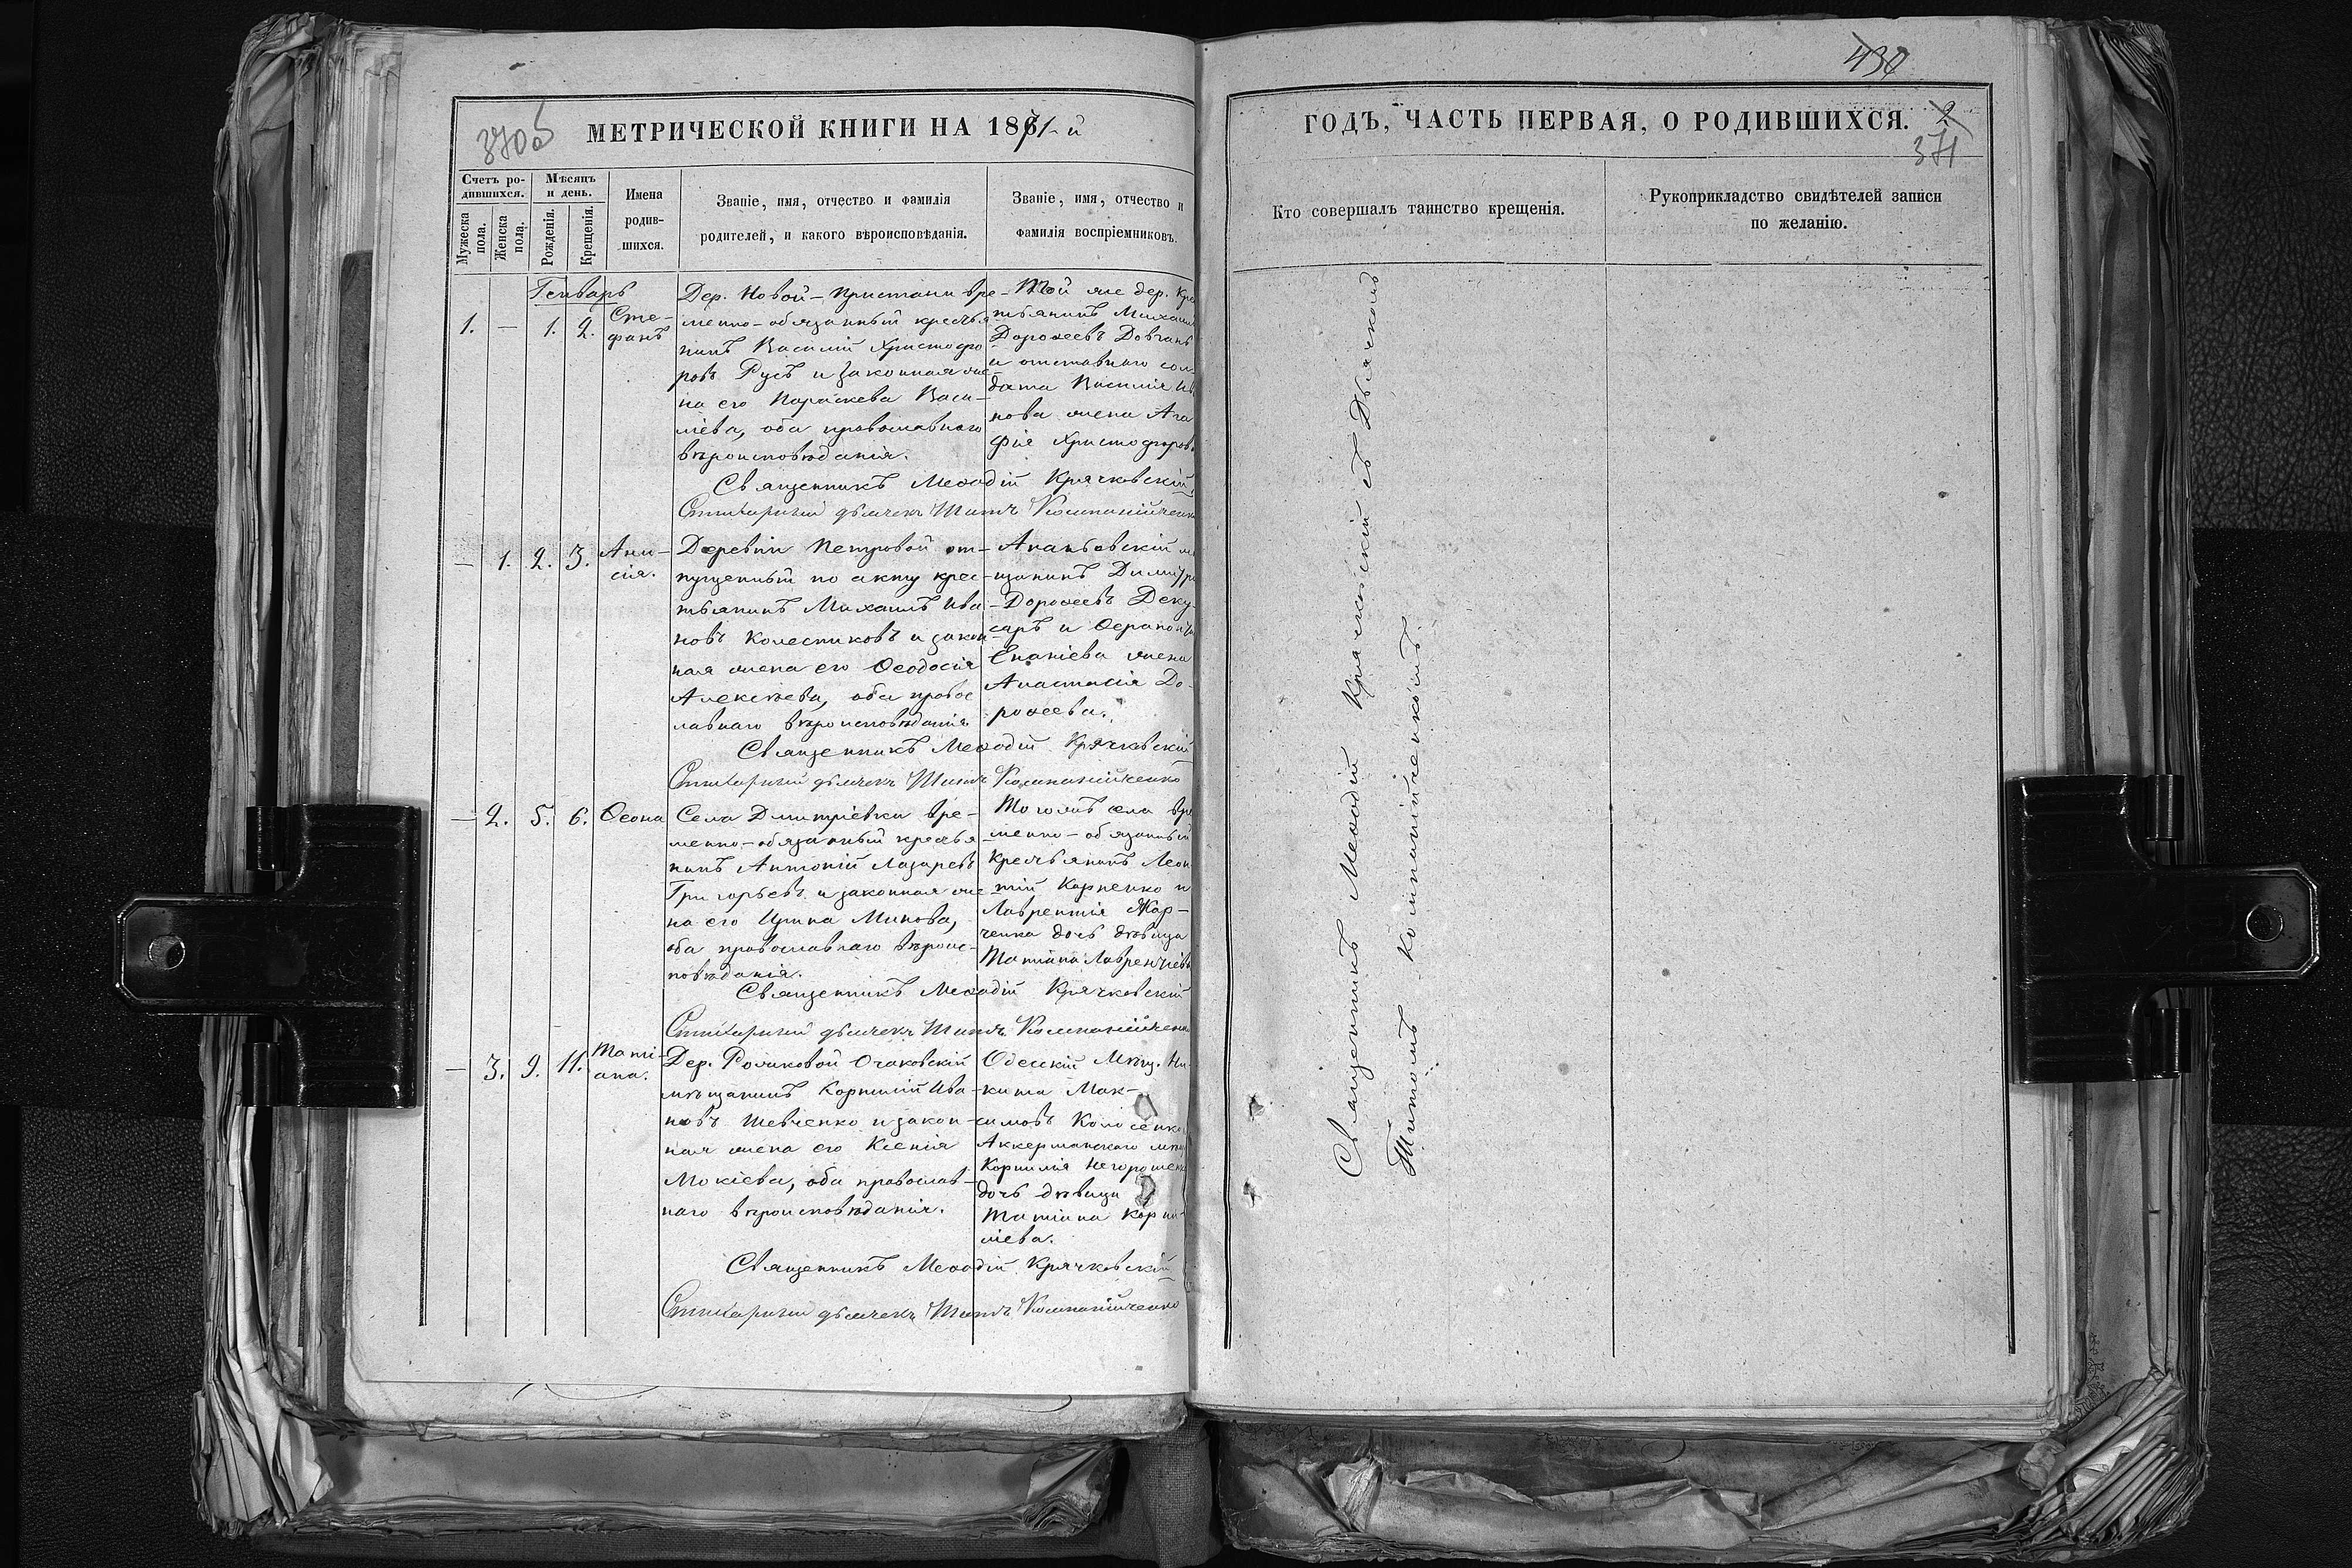 370б
МЕТРИЧЕСКОЙ КНИГИ НА 1871-й
Счетъ ро-
дившихся.
Мужеска
пола.
Женска
пола.
Мѣсяцъ
и день.
Рожденія.
Крещенія.
Имена
родив-
шихся.
Званіе, имя, отчество и фамилія
родителей, и какого вѣроисповѣданія.
Званіе, имя, отчество и
фамилія воспріемниковъ.
Генварь
1. — 1. 2.
Сте-
фанъ
Дер. Новой-Пристани вре-
менно-обязанный крестья
нинъ Василій Христофо
ровъ Русъ и законная же
на его Параскева Васи-
ліева, оба православнаго
вѣроисповѣданія.
Той же дер. Кре
стьянинъ Михаилъ
Дорофеевъ Довгань
и отставнаго сол-
дата Василія Ив
нова жена Ага
фія Христофоров
Священникъ Меѳодій Крячковскій
дьячекъ Титъ Компанійченко
— 1. 2. 3.
Ани-
сія.
Деревни Петровой от-
пущенный по акту крес-
тьянинъ Михаилъ Ива
новъ Колесниковъ и закон
ная жена его Ѳеодосія
Алексѣева, оба правос
лавнаго вѣроисповѣданія
Ананьевскій м
щанинъ Димитрі
Дороѳеевъ Деку-
саръ и
жена
Анастасія До-
роѳеева.
Священникъ Меѳодій Крячковскій
дьячекъ Титъ Компанійченко
— 2. 5. 6.
Ѳеона
Села Дмитріевки вре-
менно-обязанный крестья
нинъ Антоній Лазаревъ
Григорьевъ и законная же
на его Ирина Минова,
оба православнаго вѣроис-
повѣданія.
Тогожъ села вре
менно-обязанный
Крестьянинъ Леон
тій Карпенко и
Лаврентія Хар-
ченка дочь дѣвица
Татіана Лаврентіева
Священникъ Меѳодій Крячковскій
дьячекъ Титъ Компанійченко
— 3. 9. 11.
Тати-
ана.
Дер. Очаковскій
мѣщанинъ Корнилій Ива
новъ Шевченко и закон-
ная жена его Ксенія
Мокіева, оба православ-
наго вѣроисповѣданія.
Одесскій Мѣщ. Ни-
кита Мак-
симовъ
Аккерманскаго мѣщ
Корнилія
дочь дѣвица
Татіана Корни-
ліева.
Священникъ Меѳодій Крячковскій
дьячекъ Титъ Компанійченко
430
ГОДЪ, ЧАСТЬ ПЕРВАЯ, О РОДИВШИХСЯ.
2
371
Кто совершалъ таинство крещенія.
Рукоприкладство свидѣтелей записи
по желанію.
Священникъ Меѳодій Крячковскій съ Дьячкомъ
Титомъ Компанійченкомъ.